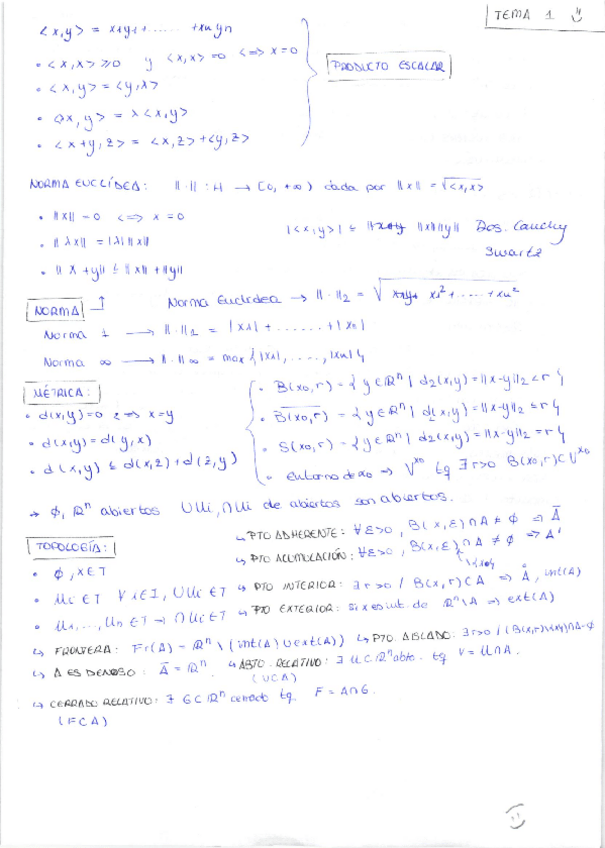 TEMA 1
<x,y> = x1y1 + ...... + xnyn
• <x,x> ≥ 0 y <x,x> = 0 <=> x = 0
PRODUCTO ESCALAR
• <x,y> = <y,x>
• <λx,y> = λ<x,y>
• <x+y,z> = <x,z> + <y,z>
NORMA EUCLÍDEA: ||·|| : H → [0,+∞) dada por ||x|| = √<x,x>
• ||x|| = 0 <=> x = 0
|<x,y>| ≤ ||x||||y|| Des. Cauchy
Swartz
• ||λx|| = |λ|||x||
• ||x+y|| ≤ ||x|| + ||y||
NORMA
Norma Euclídea → ||·||2 = √x1² + ..... + xn²
Norma 1 → ||·||1 = |x1| + ....... + |xn|
Norma ∞ → ||·||∞ = max{|x1|, ...., |xn|}
MÉTRICA:
• d(x,y) = 0 <=> x = y
• d(x,y) = d(y,x)
• d(x,y) ≤ d(x,z) + d(z,y)
• B(x0,r) = {y ∈ ℝⁿ | d2(x,y) = ||x-y||2 < r}
• B(x0,r) = {y ∈ ℝⁿ | d2(x,y) = ||x-y||2 ≤ r}
• S(x0,r) = {y ∈ ℝⁿ | d2(x,y) = ||x-y||2 = r}
• Entorno de x0 => V^x0 tq ∃r>0 B(x0,r) ⊂ V^x0
→ ∅, ℝⁿ abiertos ∪Ui, ∩Ui de abiertos son abiertos.
TOPOLOGÍA:
• ∅, X ∈ T
• Ui ∈ T ∀i ∈ I, ∪Ui ∈ T
• U1, ..., Un ∈ T → ∩Ui ∈ T
↳ PTO ADHERENTE: ∀ε>0, B(x,ε)∩A ≠ ∅ => Ā
↳ PTO ACUMULACIÓN: ∀ε>0, B(x,ε)∩A ≠ ∅ => A'
\{x}
↳ PTO INTERIOR: ∃r>0 / B(x,r) ⊂ A => Å, int(A)
↳ PTO EXTERIOR: si x es int. de ℝⁿ\A => ext(A)
↳ FRONTERA: Fr(A) = ℝⁿ \ (int(A) ∪ ext(A)) ↳ PTO. AISLADO: ∃r>0 / (B(x,r)\{x})∩A=∅
↳ A ES DENSO: Ā = ℝⁿ. ↳ ABTO. RELATIVO: ∃ U ⊂ ℝⁿ abto. tq V = U∩A.
(V⊂A)
↳ CERRADO RELATIVO: ∃ G ⊂ ℝⁿ cerrado tq. F = A∩G.
(F⊂A)